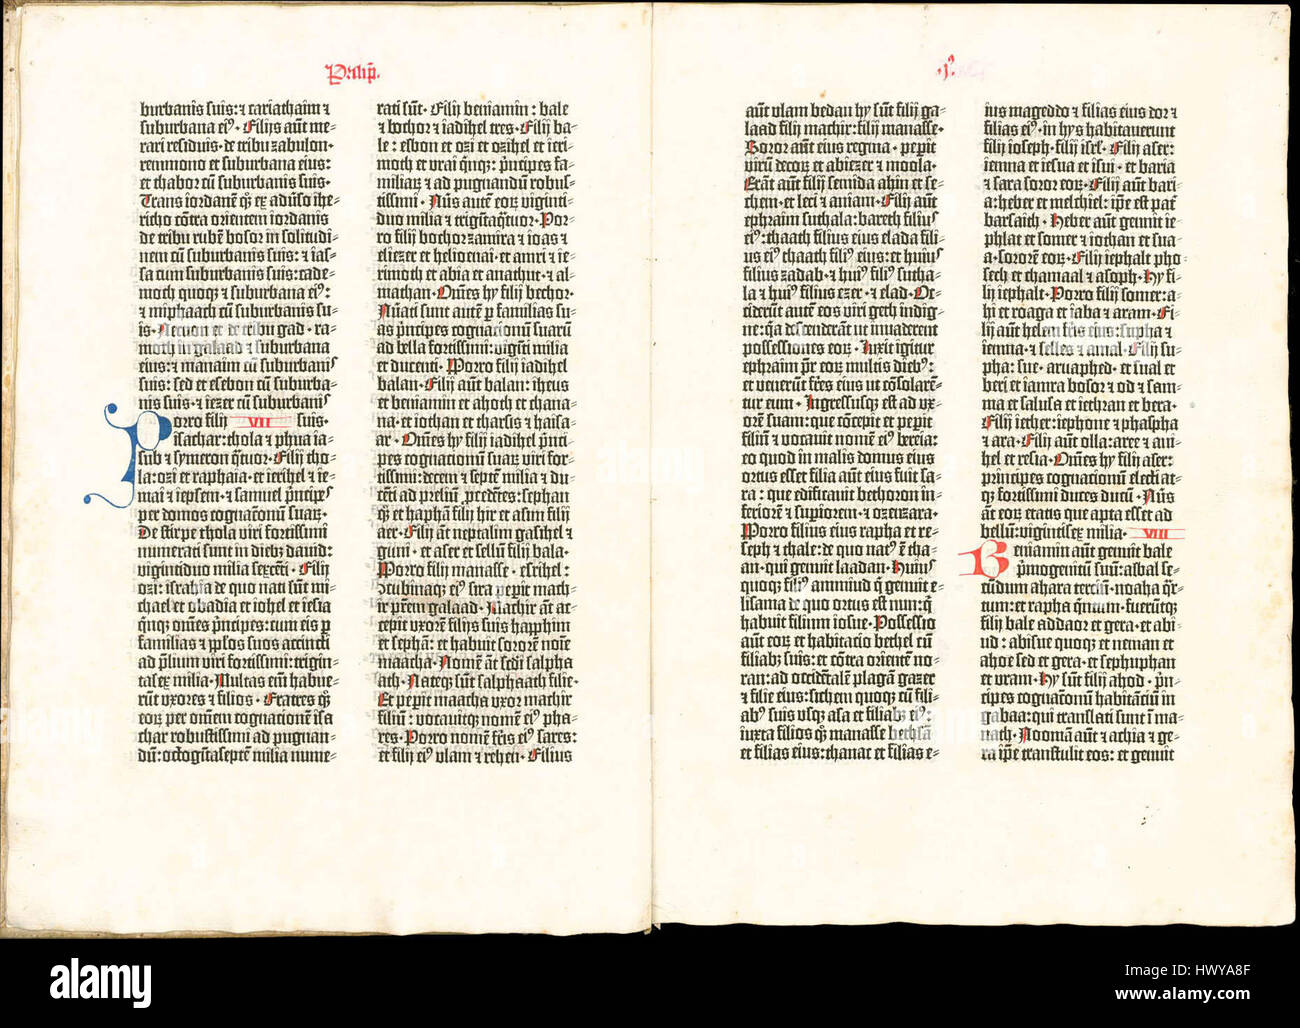 Paralip̄.
burbanis suis: ⁊ cariathaim ⁊
suburbana ei⁹. Filijs aūt me-
rari residuis. de tribu zabulon.
remmono et suburbana eius:
et thabor cū suburbanis suis.
Trans iordanē q̄ꝫ ex adūso ihe-
richo cōtra orientem iordanis
de tribu rubē bosor in solitudi-
nem cū suburbanis suis: ⁊ ias-
sa cum suburbanis suis: cade-
moth quoqꝫ ⁊ suburbana ei⁹:
⁊ miphaath cū suburbanis su-
is. Necnon et de tribu gad. ra-
moth in galaad ⁊ suburbana
eius: ⁊ manaim cū suburbanis
suis: sed et esebon cū suburba-
nis suis. ⁊ iezer cū suburbanis
Porro filij VII suis.
isachar: thola ⁊ phua ia-
sub ⁊ symeron q̄tuor. Filij tho-
la: ozi et raphaia. et ierihel ⁊ ie-
mai ⁊ iepsem. ⁊ samuel p̄ncipes
per domos cognationū suaꝝ.
De stirpe thola viri fortissimi
numerati sunt in diebꝫ dauid:
vigintiduo milia sexcēti. Filij
ozi: israhia de quo nati sūt mi-
chael et obadia et iohel et iesia
q̄nqꝫ om̄es p̄ncipes: cum eis p
familias ⁊ ip̄sos suos accincti
ad p̄lium viri fortissimi: trigin-
tasex milia. Multas eīn habue-
rūt vxores ⁊ filios. Fratres q̄ꝫ
eoꝝ per om̄em cognationē isa
char robustissimi ad pugnan-
dū: octogītaseptē milia nume-
rati sūt. Filij beniamin: bale
⁊ bochor ⁊ iadihel tres. Filij ba-
le: esbon et ozi et ozihel et ieri-
moth et vrai q̄nqꝫ: p̄ncipes fa-
miliaꝝ ⁊ ad pugnandū robus-
tissimi. Nūs autē eoꝝ viginti-
duo milia ⁊ trigītaq̄tuor. Por-
ro filij bochor: zamira ⁊ ioas ⁊
eliezer et helioenai. et amri ⁊ ie-
rimoth et abia et anathut. ⁊ al-
mathan. Om̄es hy filij bechor.
Nūati sunt autē p familias su-
as p̄ncipes cognationū suarū
ad bella fortissimi: vigīti milia
et ducenti. Porro filij iadihel
balan. Filij aūt balan: iheus
et beniamin et ahoth et chana-
na. et iothan et tharsis ⁊ haisa-
ar. Om̄es hy filij iadihel p̄nci-
pes cognationū suaꝝ viri for-
tissimi: decem et septē milia ⁊ du-
cēti ad preliū ꝓcedētes: sephan
q̄ꝫ et haphā filij hir et asim filij
aer. Filij aūt neptalim gasihel ⁊
guni. et aser et sellū filij bala.
Porro filij manasse. esrihel:
⁊cubinaqꝫ ei⁹ sira peꝑit mach-
ir prēm galaad. Machir āt ac-
cepit vxorē filijs suis happhim
et sephā: et habuit sororē noīe
maacha. Nomē āt sedi salpha
ath. Nateqꝫ sūt salphaath filie.
Et peꝑit maacha vxor machir
filiū: vocauitqꝫ nomē ei⁹ pha-
res. Porro nomē fr̄is ei⁹ sares:
et filij ei⁹ vlam ⁊ rehen. Filius
.j⁹.
aūt vlam bedan hy sūt filij ga-
laad filij machir: filij manasse.
Soror aūt eius regina. peꝑit
virū decoꝝ et abiezer ⁊ moola.
Erāt aūt filij semida ahin et se-
chem. et leci ⁊ aniam. Filij aūt
ephraim suthala: bareth filius
ei⁹: thaath filius eius elada fili-
us ei⁹ thaath fili⁹ eius: et huius
filius zadab. ⁊ hui⁹ fili⁹ sutha-
la ⁊ hui⁹ filius ezer. ⁊ elad. Oc-
ciderūt autē eos viri geth indige-
ne: q̄a descenderāt ut inuaderent
possessiones eoꝝ. Luxit igitur
ephraim pr̄ eoꝝ multis dieb⁹:
et venerūt fr̄es eius ut cōsolarē-
tur eum. Ingressusqꝫ est ad vx-
orē suam: que cōcepit et peꝑit
filiū ⁊ vocauit nomē ei⁹ bereia:
eo quod in malis domus eius
ortus esset filia aūt eius fuit sa-
ra: que edificauit bethoron in-
feriorē ⁊ supiorem. ⁊ ozenzara.
Porro filius eius rapha et re-
seph ⁊ thale: de quo nat⁹ ē tha-
an. qui genuit laadan. Huius
quoqꝫ fili⁹ ammiud q̄ genuit e-
lisama de quo ortus est nun: q̄
habuit filium iosue. Possessio
aūt eoꝝ et habitacio bethel cū
filiabꝫ suis: et cōtra oriētē no-
ran: ad occidētalē plagā gazer
⁊ filie eius: sichem quoqꝫ cū fili-
ab⁹ suis vsqꝫ asa et filiabꝫ ei⁹:
iuxta filios q̄ꝫ manasse bethsā
et filias eius: thanat et filias e-
ius mageddo ⁊ filias eius dor ⁊
filias ei⁹. in hys habitauerunt
filij ioseph. filij isrl. Filij aser:
iemna et iesua et isui. et baria
⁊ sara soror eoꝝ. Filij aūt bari-
a: heber et melchiel: ip̄e est pat̄
barsaith. Heber aūt genuit ie-
phlat et somer ⁊ iothan et sua-
a. sororē eoꝝ. Filij iephalt pho-
sech et chamaal ⁊ asoph. Hy fi-
lij iephalt. Porro filij somer: a-
hi et roaga et iaba ⁊ aram. Fi-
lij aūt helem fr̄is eius: supha ⁊
iemna. ⁊ selles ⁊ amal. Filij su-
pha: sue. aruaphed. et sual et
beri et iamra bosor ⁊ od ⁊ sam-
ma et salusa et iethran et bera.
Filij iether: iephone ⁊ phaspha
⁊ ara. Filij aūt olla: aree ⁊ ani-
hel et resia. Om̄es hy filij aser:
principes cognationū electi at-
qꝫ fortissimi duces ducū. Nūs
āt eoꝝ etatis que apta esset ad
bellū: vigintisex milia. VIII
Beniamin aūt genuit bale
p̄mogenitū suū: asbal se-
cūdum ahara terciū. noaha q̄r-
tum: et rapha q̄ntum. fuerūtqꝫ
filij bale addaor et gera. et abi-
ud: abisue quoqꝫ et neman et
ahoe sed et gera. et sephuphan
et vram. Hy sūt filij ahod. p̄n-
cipes cognationū habitātiū in
gabaa: qui translati sunt ī ma-
nath. Nooma aūt ⁊ achia ⁊ ge-
ra ip̄e transtulit eos: et genuit
alamy
Image ID: HWYA8F
www.alamy.com